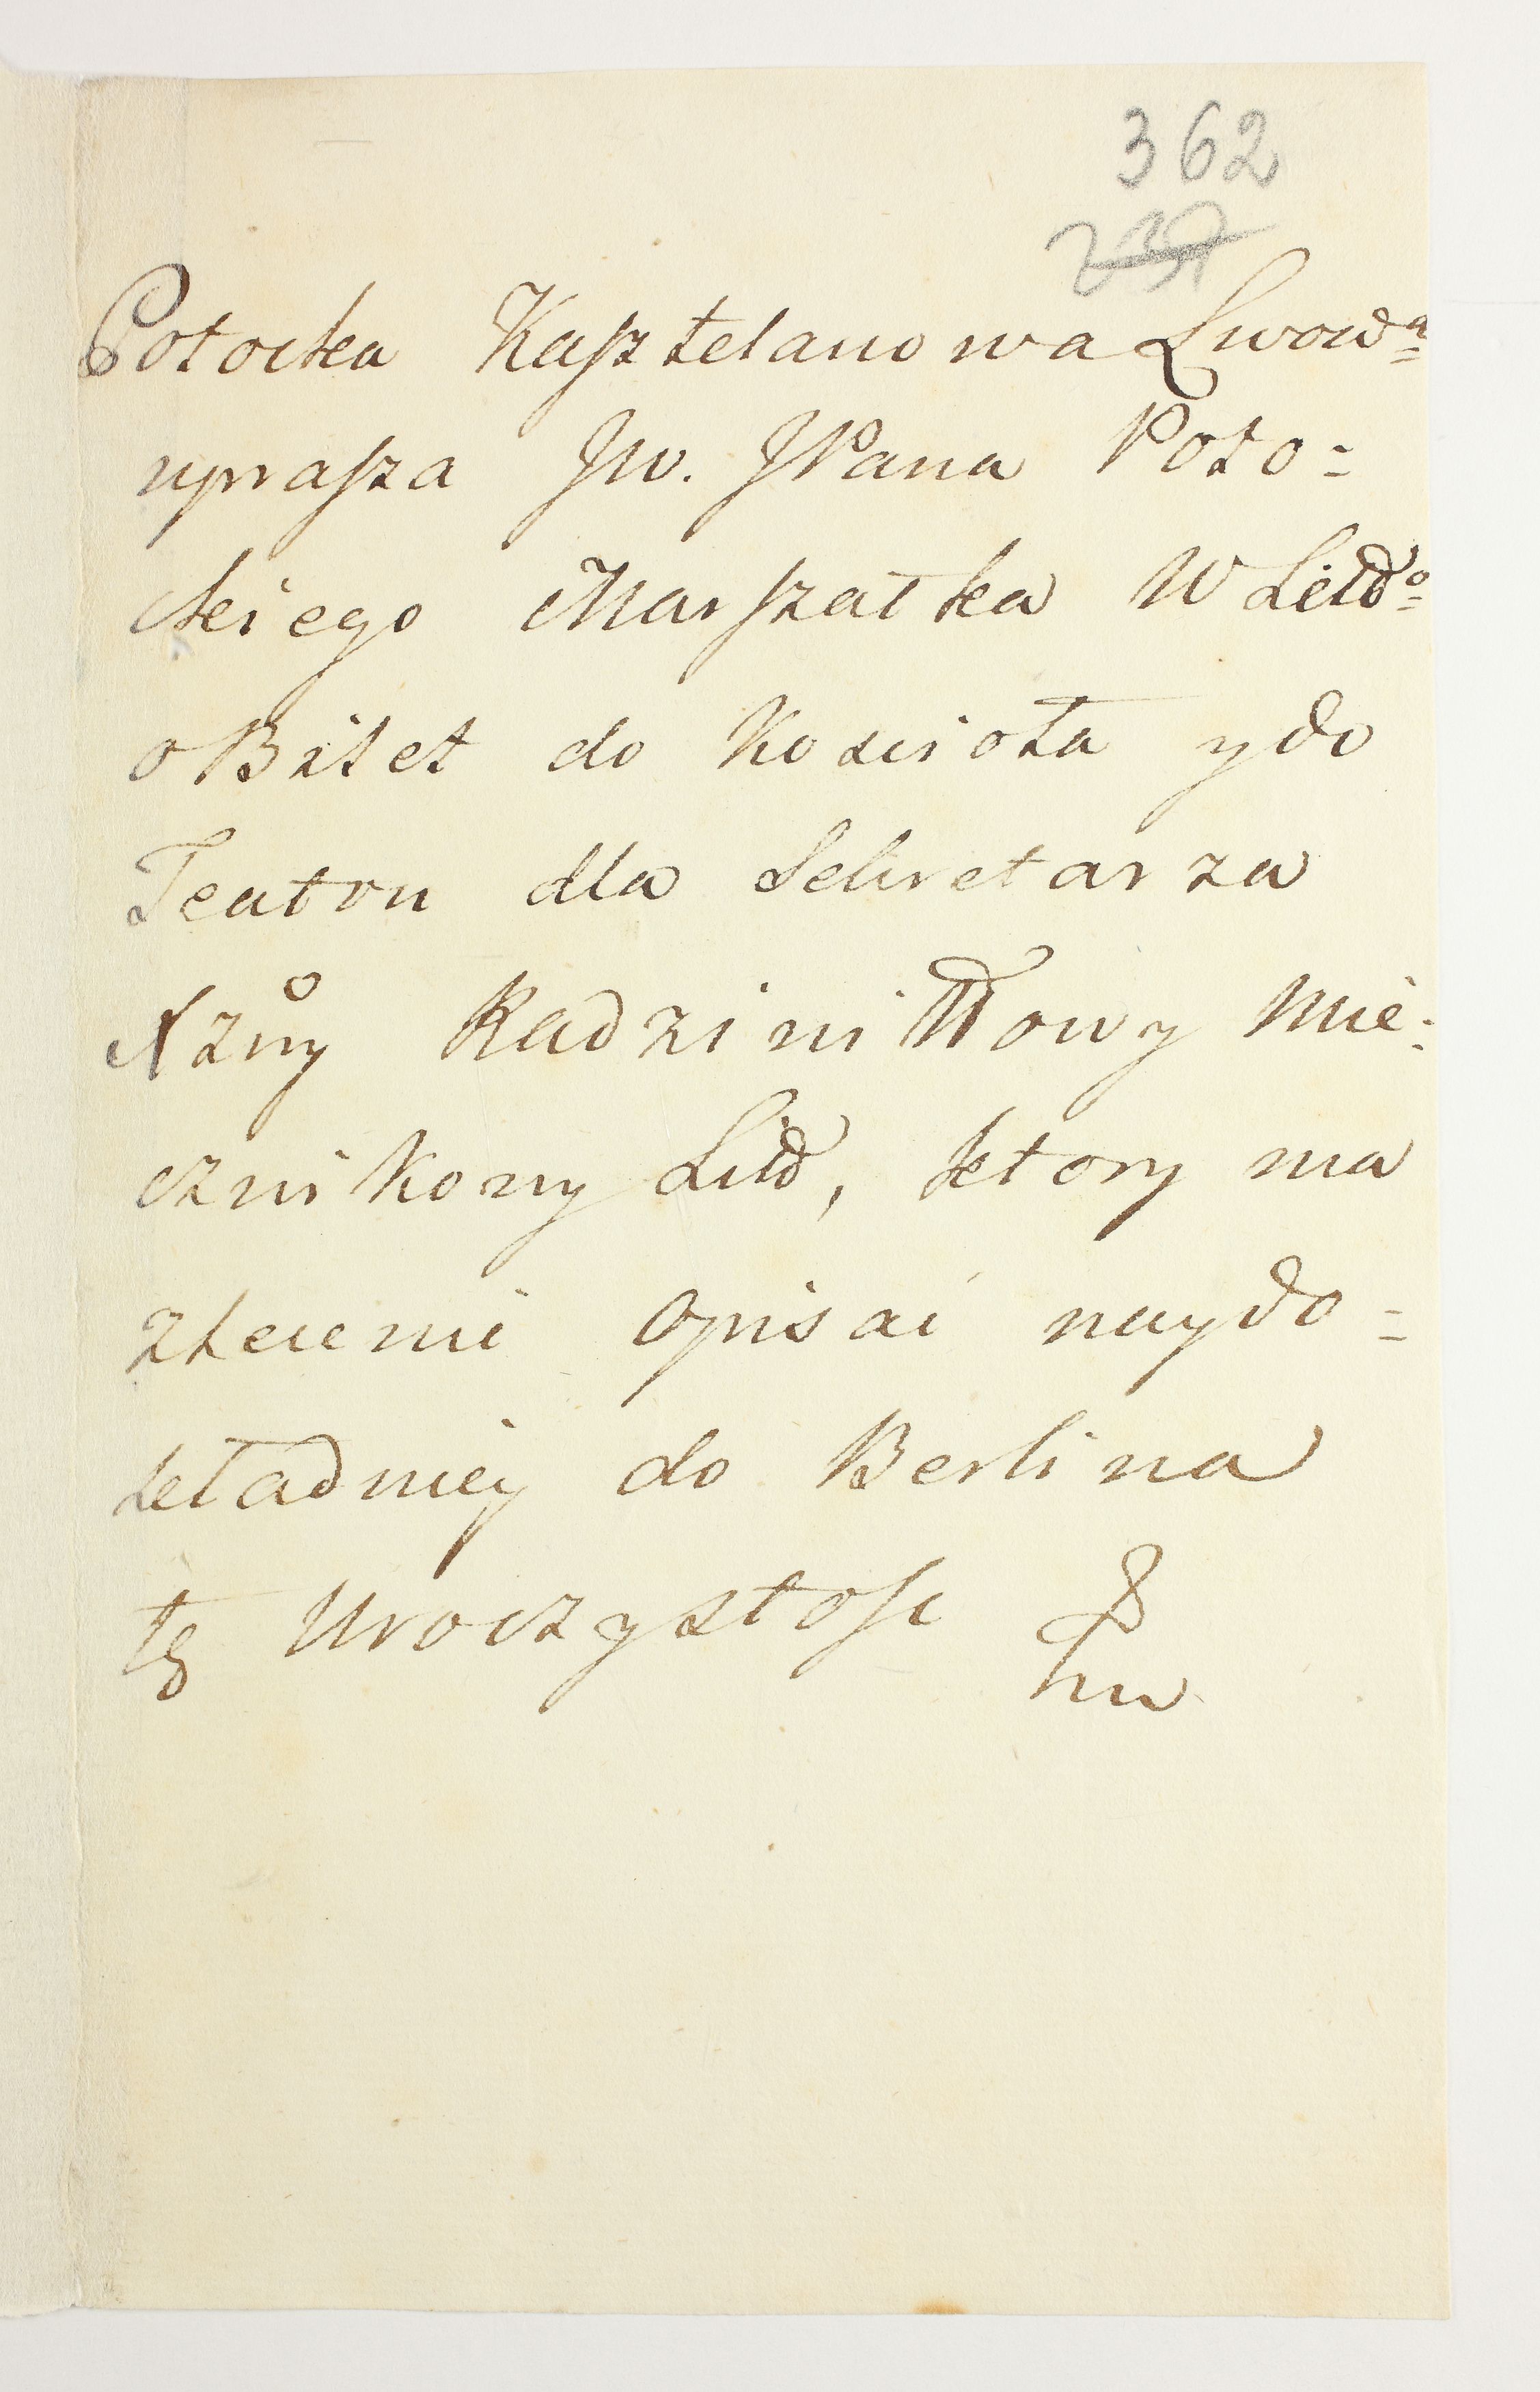 362
237
Potocka Kasztelanowa Lwow:a
uprasza Jw. JPana Poto=
ckiego Marszałka W Litto
o Bilet do Koscioła y do
Teatru dla Sekretarza
Xżny Radziwiłłowy Mie:
cznikowy Litt, ktory ma
zlecenie Opisać naydo=
kładniey do Berlina
tę Uroczystość